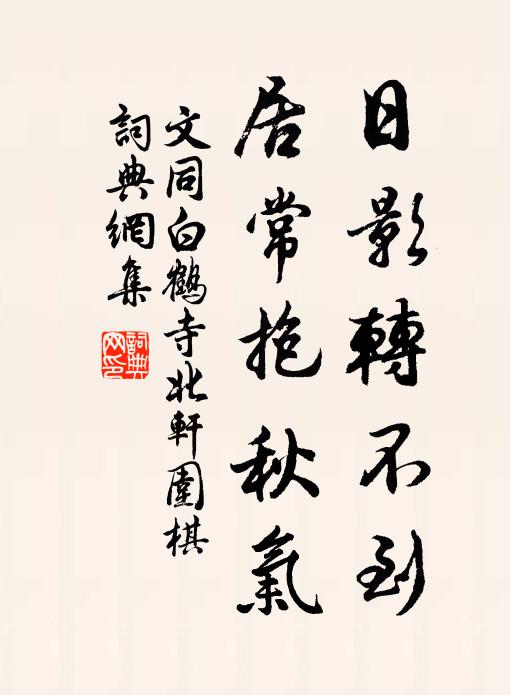 日影轉不到
居常抱秋氣
文同白鶴寺北軒圍棋
詞典網集
詞典網印